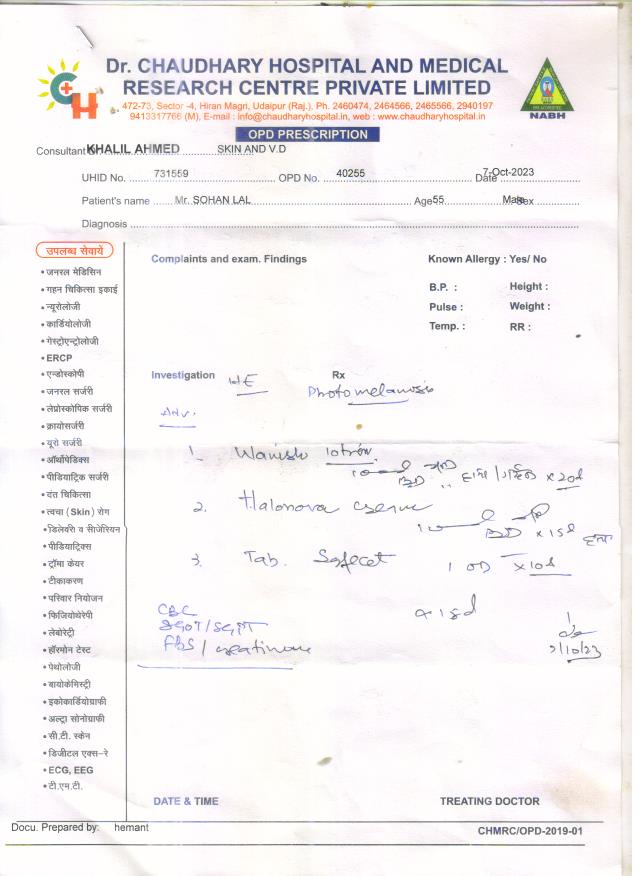 Dr. CHAUDHARY HOSPITAL AND MEDICAL
RESEARCH CENTRE PRIVATE LIMITED
472-73, Sector -4, Hiran Magri, Udaipur (Raj.), Ph. 2460474, 2464566, 2465566, 2940197
9413317766 (M), E-mail : info@chaudharyhospital.in, web : www.chaudharyhospital.in
NABH
OPD PRESCRIPTION
Consultant KHALIL AHMED SKIN AND V.D
UHID No. 731559 OPD No. 40255 Date 7-Oct-2023
Patient's name Mr. SOHAN LAL Age 55 Male Sex
Diagnosis
उपलब्ध सेवायें
Complaints and exam. Findings Known Allergy : Yes/ No
• जनरल मेडिसिन
• गहन चिकित्सा इकाई B.P. : Height :
• न्यूरोलोजी Pulse : Weight :
• कार्डियोलोजी Temp. : RR :
• गेस्ट्रोएन्ट्रोलोजी
• ERCP
• एन्डोस्कोपी Investigation Rx
• जनरल सर्जरी Photomelanosis
• लेप्रोस्कोपिक सर्जरी Adv.
• क्रायोसर्जरी
• यूरो सर्जरी 1. lotion
• ऑर्थोपेडिक्स BD x 20d
• पीडियाट्रिक सर्जरी
• दंत चिकित्सा 2. Halonova
• त्वचा (Skin) रोग
• डिलेवरी व सीजेरियन BD x 15d
• पीडियाट्रिक्स
• ट्रॉमा केयर 3. Tab. 1 OD x 10d
• टीकाकरण
• परिवार नियोजन
• फिजियोथेरेपी CBC
• लेबोरेट्री SGOT/SGPT
• हॉरमोन टेस्ट FBS / creatinine
• पेथोलोजी
• बायोकेमिस्ट्री
• इकोकार्डियोग्राफी
• अल्ट्रा सोनोग्राफी
• सी.टी. स्केन
• डिजीटल एक्स-रे
• ECG, EEG
• टी.एम.टी.
DATE & TIME TREATING DOCTOR
Docu. Prepared by: hemant CHMRC/OPD-2019-01